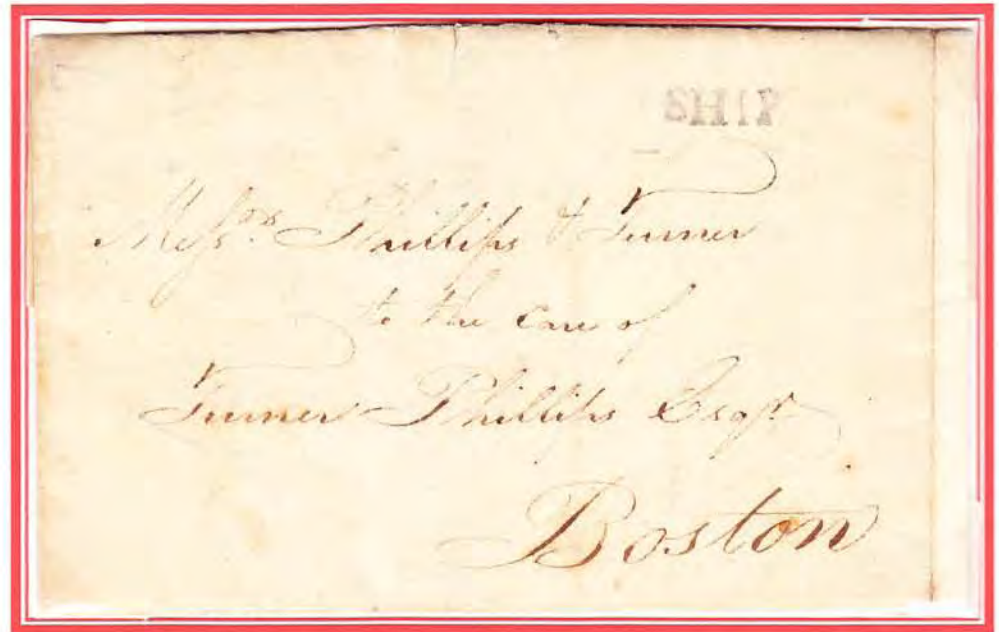 SHIP
Messrs Phillips & Turner
to the Care of
Turner Phillips Esqr
Boston